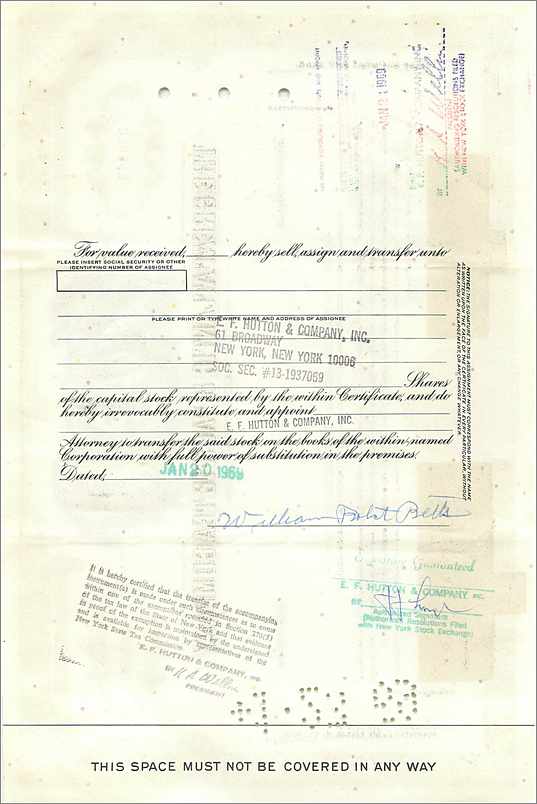 JAN 21 1969
(AUTHORIZED RESOLUTIONS FILED
WITH NEW YORK STOCK EXCHANGE)
For value received, hereby sell, assign and transfer unto
PLEASE INSERT SOCIAL SECURITY OR OTHER
IDENTIFYING NUMBER OF ASSIGNEE
PLEASE PRINT OR TYPEWRITE NAME AND ADDRESS OF ASSIGNEE
E. F. HUTTON & COMPANY, INC.
61 BROADWAY
NEW YORK, NEW YORK 10006
SOC. SEC. #13-1937059
Shares
of the capital stock represented by the within Certificate, and do
hereby irrevocably constitute and appoint
E. F. HUTTON & COMPANY, INC.
Attorney to transfer the said stock on the books of the within named
Corporation with full power of substitution in the premises.
Dated, JAN 20 1969
NOTICE: THE SIGNATURE TO THIS ASSIGNMENT MUST CORRESPOND WITH THE NAME
AS WRITTEN UPON THE FACE OF THE CERTIFICATE IN EVERY PARTICULAR WITHOUT
ALTERATION OR ENLARGEMENT, OR ANY CHANGE WHATEVER.
William Betts
Signature Guaranteed
E. F. HUTTON & COMPANY INC.
BY
Authorized Signature
(Authorized Resolutions Filed
with New York Stock Exchange)
It is hereby certified that the transfer of the accompanying
instrument(s) is made under such circumstances as to come
within one of the exemptions specified in Section 270(5)
of the tax law of the State of New York, and that evidence
in proof of the exemption is maintained by the undersigned
and is available for inspection by representatives of the
New York State Tax Commission.
E. F. HUTTON & COMPANY, INC.
BY
PRESIDENT
THIS SPACE MUST NOT BE COVERED IN ANY WAY